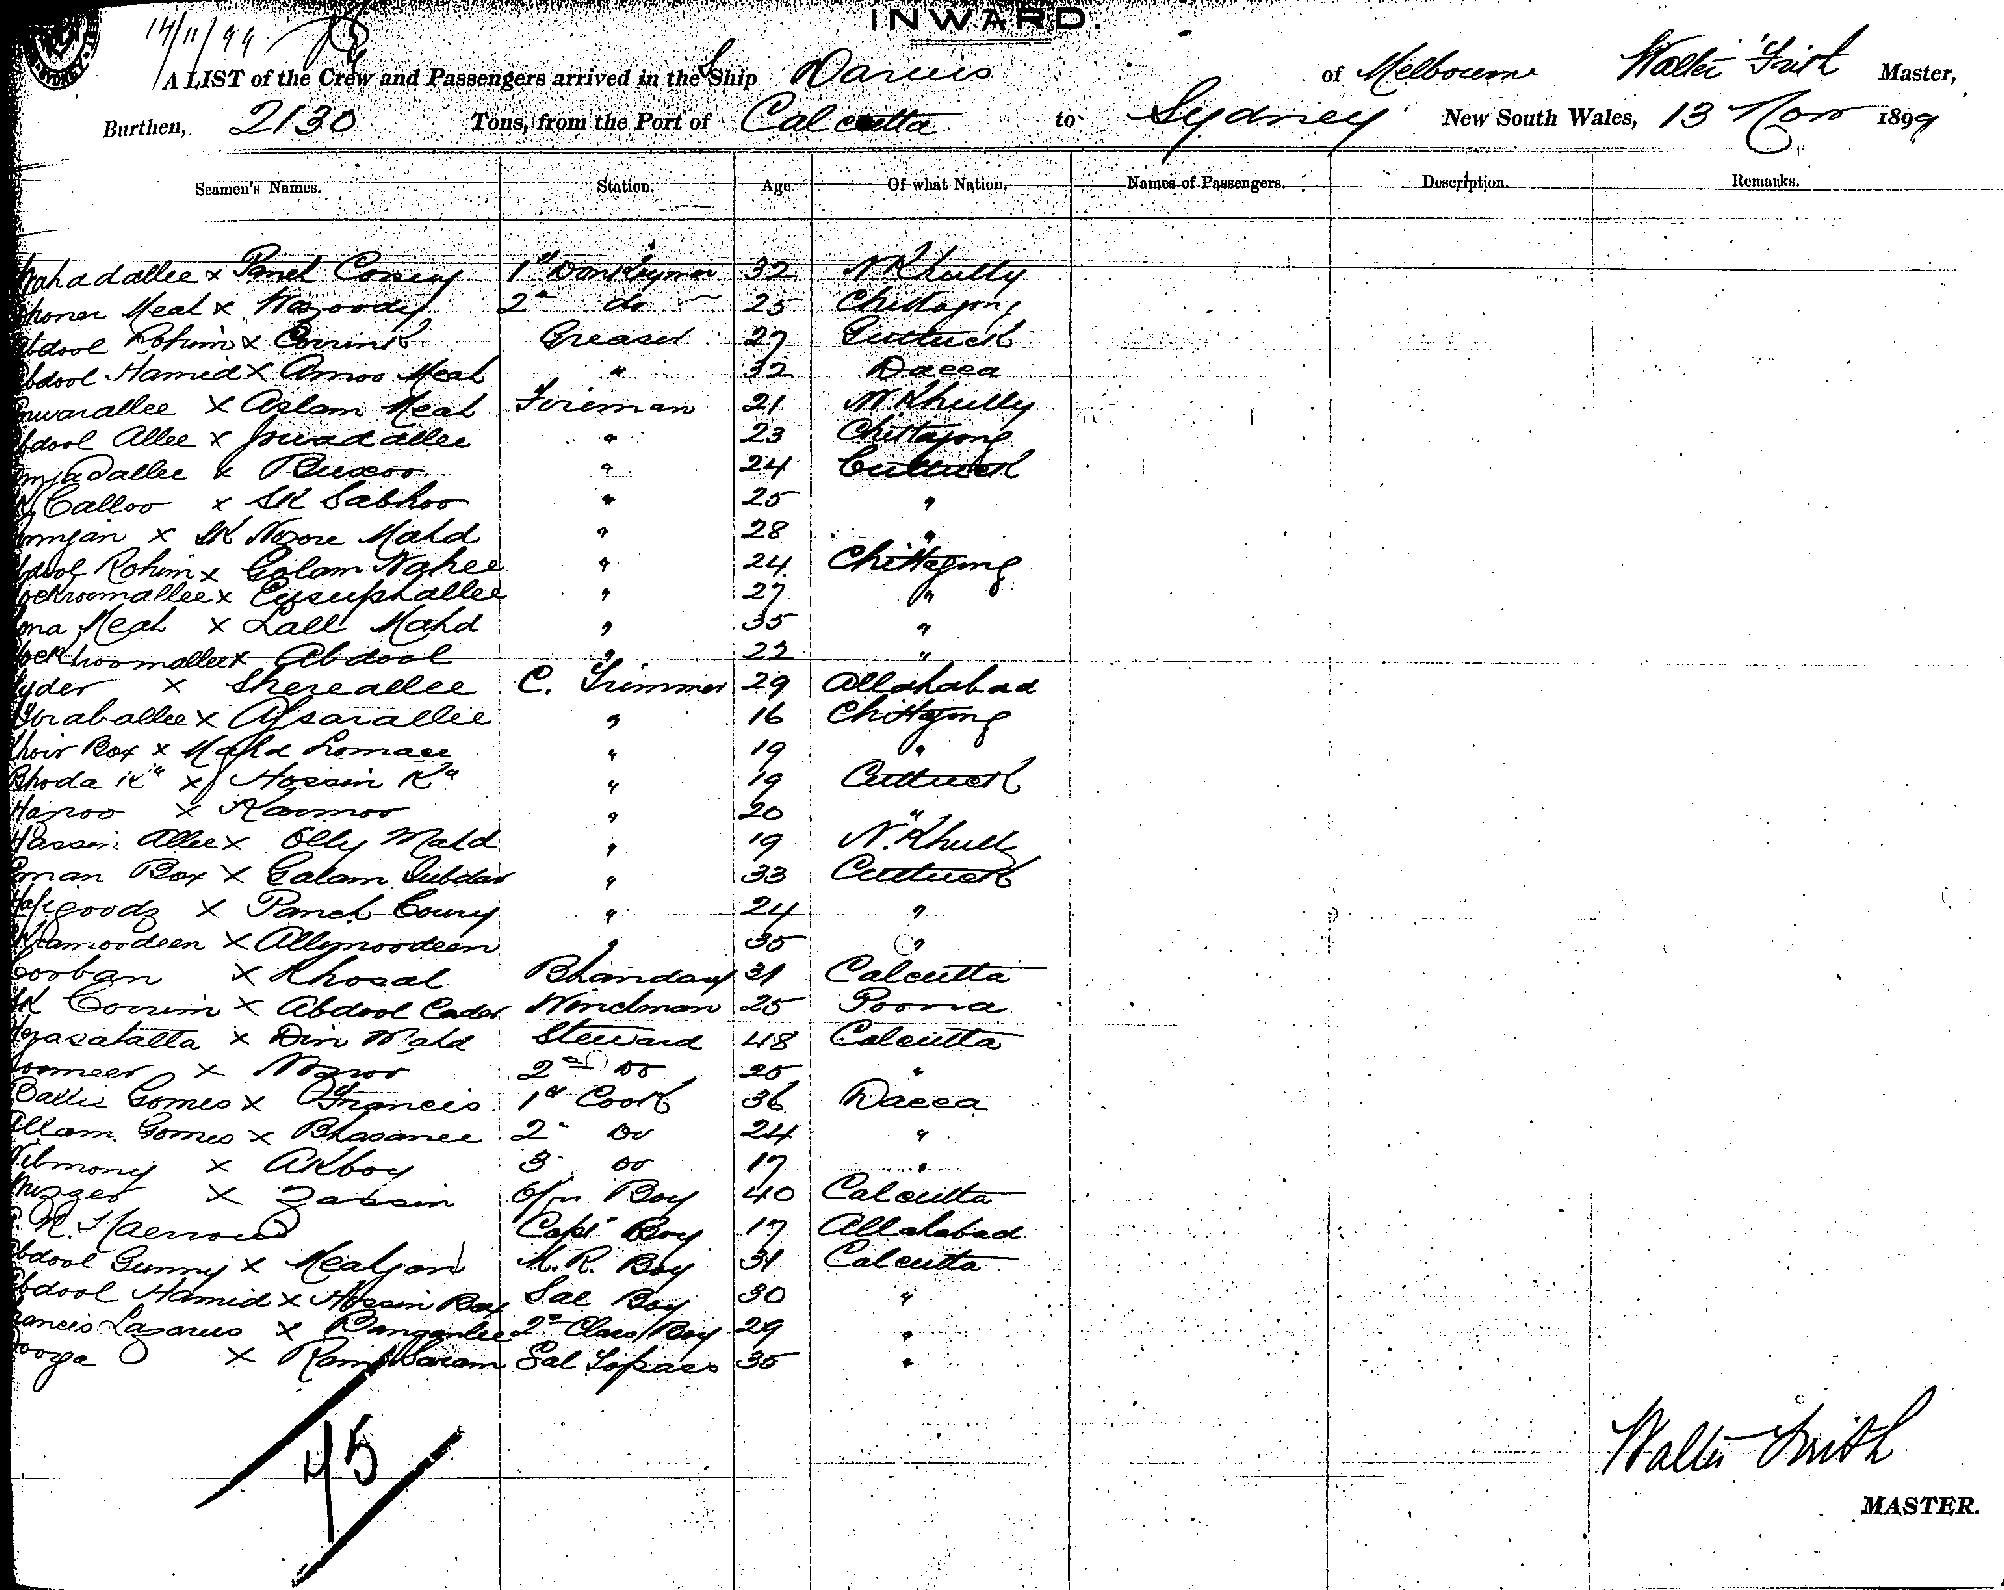 INWARD.
14/11/99
A LIST of the Crew and Passengers arrived in the Ship Darius of Melbourne Walter Smith Master,
Burthen, 2130 Tons, from the Port of Calcutta to Sydney New South Wales, 13 Nov 1899
Seamen's Names. Station. Age. Of what Nation. Names of Passengers. Description. Remarks.
ahadallee x Panch Cowry 1st Donkeyman 32 N Khully
honer Meah x 2nd do 25 Chittagong
bdool Rohim x Greaser 27 Cuttuck
bdool Hamid x Amoo Meah " 32 Dacca
nwarallee x Aslam Meah Fireman 21 N. Khully
bdool Allee x Jowadallee " 23 Chittagong
mjadallee x Buxoo " 24 Cuttuck
Calloo x SK Sabhoo " 25 "
mjan x SK Noore Mahd " 28 "
bdool Rohim x Golam Nahee " 24 Chittagong
ockroomallee x Eusuphallee " 27 "
ona Meah x Lall Mahd " 35 "
ockhoomallee x Abdool " 22 "
yder x Shereallee C. Trimmer 29 Allahabad
oraballee x Afsarallee " 16 Chittagong
hoir Box x Mahd Lomaee " 19 "
hoda Kn x Hossin Kn " 19 Cuttuck
Haroo x Kaomoo " 20 "
Hassin Allee x Olly Mahd " 19 N. Khully
man Box x Golam Subdar " 33 Cuttuck
afigoodz x Panch Coury " 24 "
amoodeen x Allymoodeen " 35 "
oorban x Khosal Bhandary 31 Calcutta
SK Corrim x Abdool Cader Winchman 25 Poona
x Din Mahd Steward 48 Calcutta
oomeer x Nozoo 2nd Do 25 "
Battis Gomes x Francis 1st Cook 36 Dacca
allam Gomes x Bhasanee 2" Do 24 "
ilmony x Akboy 3 Do 17 "
x Zassin Off Boy 40 Calcutta
Capt Boy 17 Allahabad
bdool Gunny x Mealjan M. R. Boy 31 Calcutta
bdool Hamid x Hossin Box Sal Boy 30 "
rancis Lazarus x 2nd Class Boy 29 "
ooga x Ram Saram Sal Topass 35 "
45
Walter Smith
MASTER.